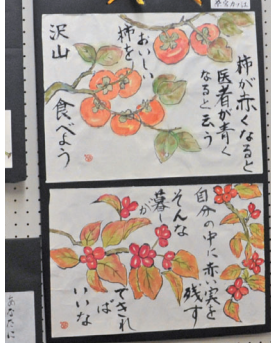 柿が赤くなると
医者が青く
なると云う
おいしい
柿を
沢山
食べよう
自分の中に赤い実を
残す
そんな
暮しが
できれ
ば
いいな
あなたに